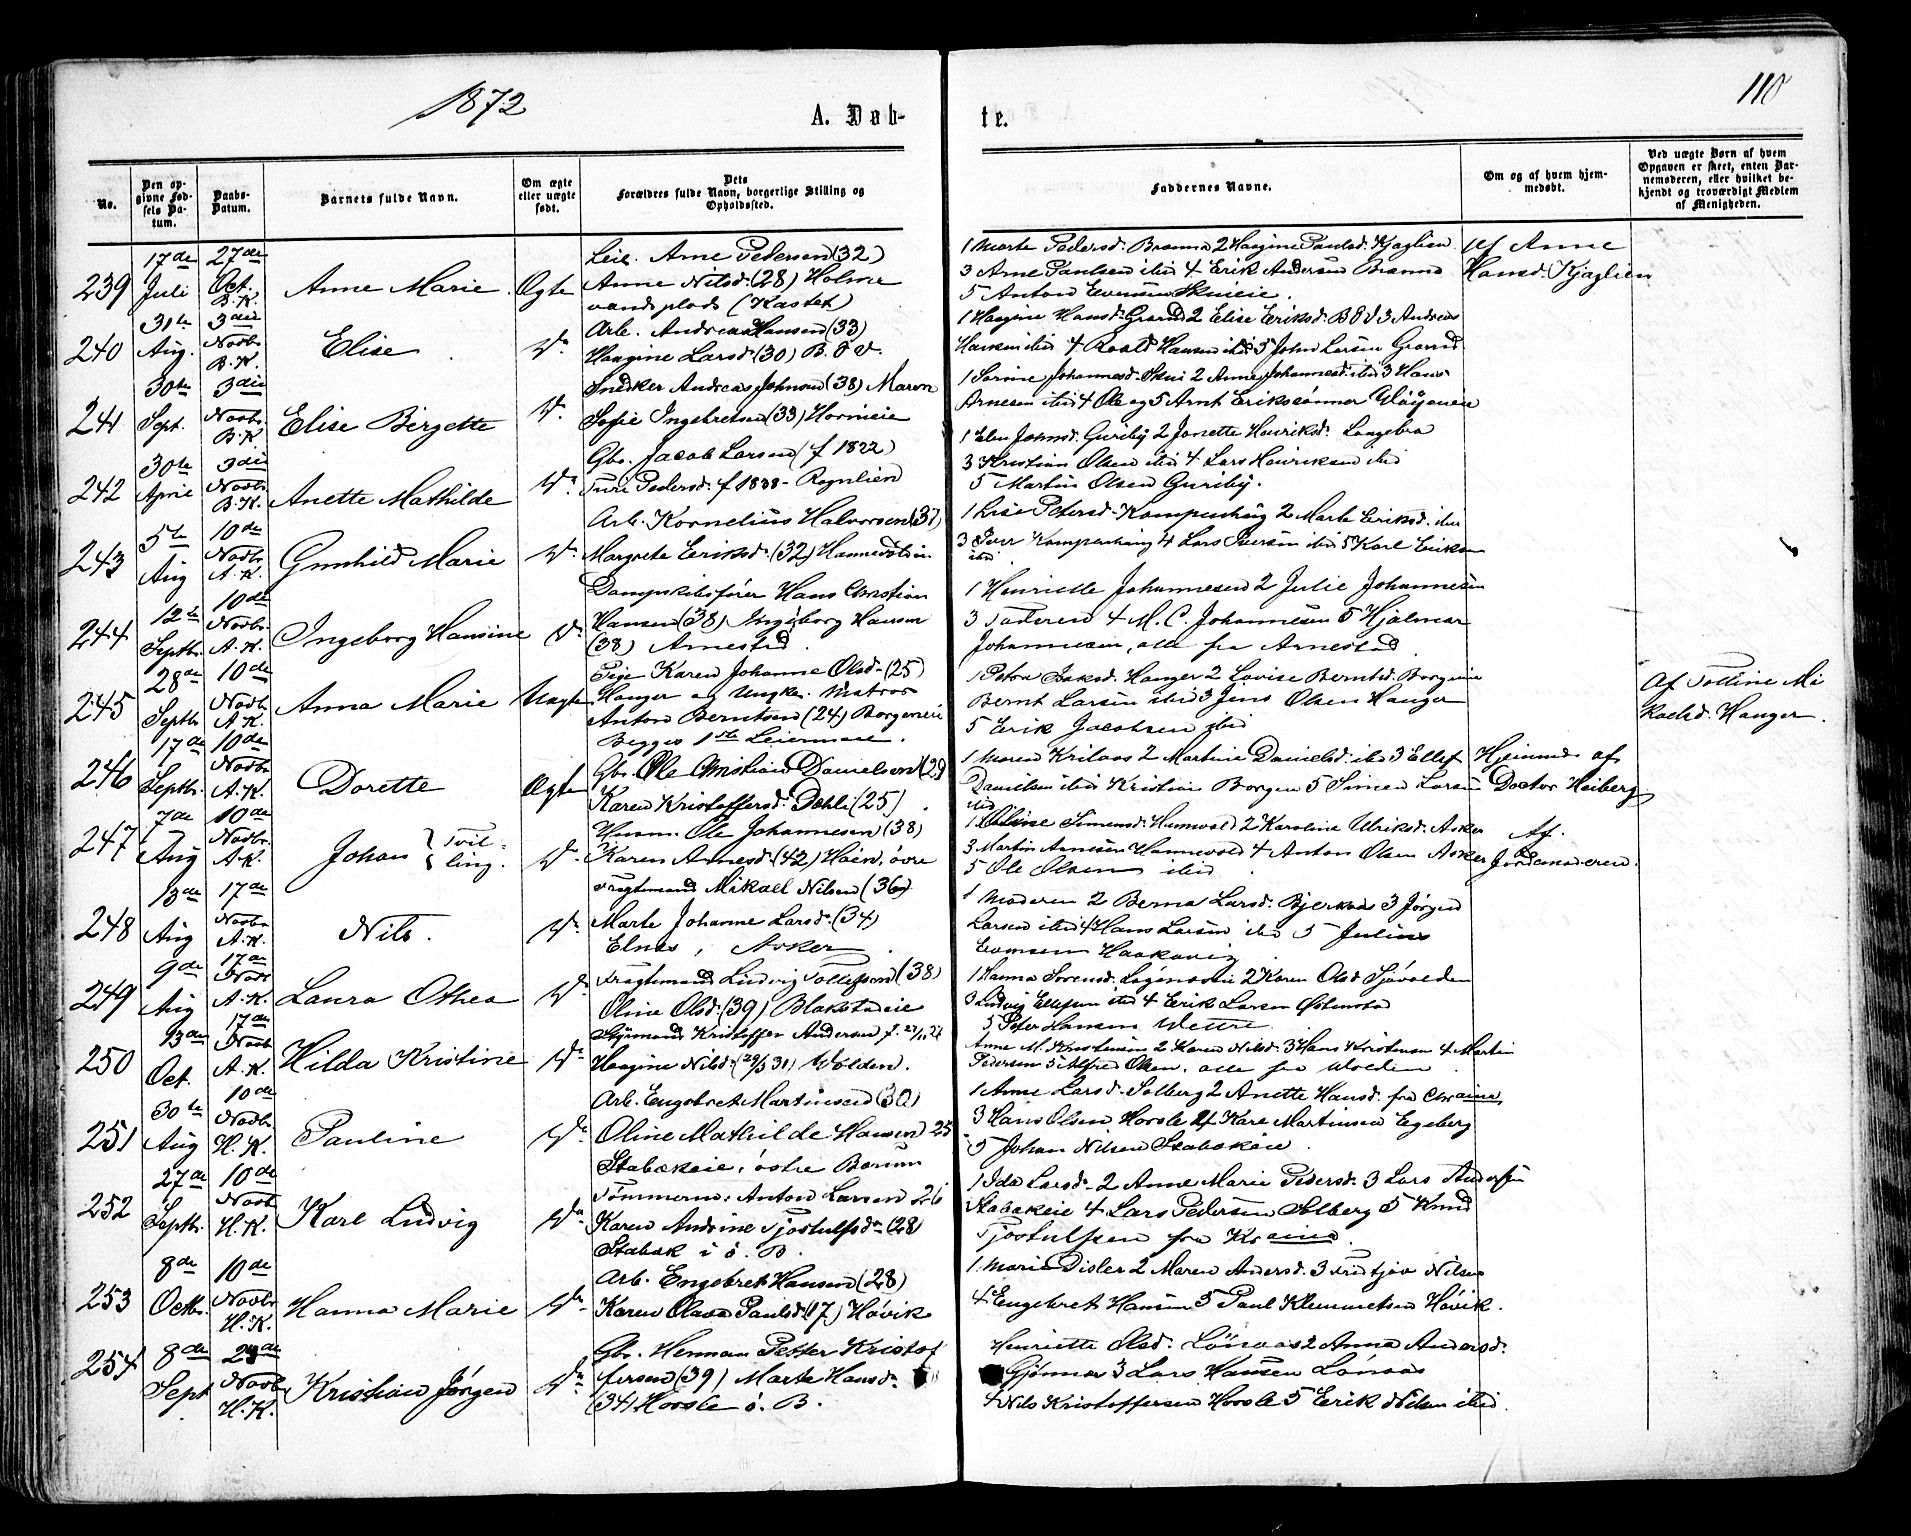 1872
A. Døb-
te.
110
No.
Den op-
givne Fød-
sels Da-
tum.
Daabs-
Datum.
Barnets fulde Navn.
Om ægte
eller uægte
født.
Dets
Forældres fulde Navn, borgerlige Stilling og
Opholdssted.
Faddernes Navne.
Om og af hvem hjem-
medøbt.
Ved uægte Børn af hvem
Opgaven er skeet, enten Bar-
nemoderen, eller hvilket be-
kjendt og troværdigt Medlem
af Menigheden.
239
17de
Juli
27de
Oct.
B.K.
Anne Marie
Ægte
Leil. Arne Pedersen (32)
Anne Nilsd. (28) Holme
vandsplads (Kastet)
1 Marte Pedersd. Brænna 2 Hangine Paulsd. Kjaglien
3 Arne Paulsen ibid 4 Erik Andersen Brænna
5 Anton Evensen Skuieie.
Af Anne
Hansd. Kjaglien
240
31te
Aug.
3die
Novbr
B.K.
Elise
Do.
Arb. Andreas Hansen (33)
Haagine Larsd. (30) B. V.
1 Haagine Hansd. Grand 2 Elise Eriksd. 3 Andreas
ibid 4 Roald Hansen ibid 5 John Larsen Grand
241
30te
Sept.
3die
Novbr.
B.K
Elise Bergette
Do.
Snedker Andreas Johnsen (38) Maren
Sofie Ingebretsen (33) Hornieie
1 Sorine Johannesd. Skui 2 Anne Johannesd. ibid 3 Hans
Arnesen ibid 4 Ole og 5 Arnt Erikssønner Vøyeneie
242
30te
April
3die
Novbr.
B.K.
Anette Mathilde
Do.
Gbr. Jacob Larsen (f 1822)
Turi Pedersd. f 1838 - Rognlien
1 Elen Johnsd. Guriby 2 Janette Henriksd. Langebra
3 Kristian Olsen ibid 4 Lars Henriksen ibid
5 Martin Olsen Guriby.
243
5te
Aug
10de
Novbr
A.K.
Gunhild Marie
Do.
Arb. Kornelius Halvorsen (37)
Margrete Eriksd. (32) Hannevoldeie
1 Lise Petersd. Kampenhaug 2 Marte Eriksd. ibid
3 Iver Kampenhaug 4 Lars Iversen ibid 5 Karl Eriksen
ibid
244
12te
Septbr.
10de
Novbr.
A.K.
Ingeborg Hansine
Do.
Dampskibsfører Hans Christian
Hansen (38) Ingeborg Hansen
(38) Arnestad.
1 Henriette Johannesen 2 Julie Johannesen
3 Faderen 4 M. C. Johannesen 5 Hjalmar
Johannesen, alle fra Arnestad
245
28de
Septbr
10de
Novbr
A.K.
Anna Marie
Uægte
Pige Karen Johanne Olsd. (25)
Hanger og Ungkr. Matros
Anton Berntsen (24) Borgeneie
Begges 1ste Leiermaal.
1 Petra Isaksd. Hanger 2 Lovise Berntsd. Borgeneie
Bernt Larsen ibid 3 Jens Olsen Hanger
5 Erik Jacobsen ibid
Af Tolline Mi
kaelsd. Hanger.
246
17de
Septbr.
10de
Novbr
A.K.
Dorette
Ægte
Gbr. Ole Christian Danielsen (29)
Karen Kristoffersd. Døhli (25).
1 Maren Krilaas 2 Martine Danielsd. ibid 3 Ellef
Danielsen ibid Kristian Borgen 5 Simen Larsen
ibid
Hjemmed. af
Doctor Heiberg
247
7de
Aug
10de
Novbr
A.K.
Johan } Tvil-
ling.
Do.
Husm. Ole Johannesen (38)
Karen Arnesd. (42) Høen, øvre
1 Oline Simensd. Hannevold 2 Karoline Ulriksd. Asker
3 Martin Arnesen Hannevold 4 Anton Olsen Asker
5 Ole Olsen ibid
Af
Jordemoderen.
248
13de
Aug
17de
Novbr
A.K.
Nils.
Do.
Fragtmand Mikael Nilsen (36)
Marte Johanne Larsd. (34)
Elnes, Asker
1 Moderen 2 Berna Larsd. Bjerkaas 3 Jørgen
Larsen ibid 4 Hans Larsen ibid 5 Julius
Evensen Haakavig
249
9de
Aug
17de
Novbr
A.K.
Laura Othea
Do.
Fragtmand Ludvig Tollefsen (38)
Oline Olsd. (39) Blakstadeie
1 Hanna Sorensd. Løgeneseie 2 Karen Olsd Sjøvolden
3 Ludvig Ellefsen ibid 4 Erik Larsen Østenstad
5 Peter Hansen Wettre
250
13de
Oct.
17de
Novbr
A.K.
Hilda Kristine
Do.
Styrmand Kristoffer Andersen f. 27/11 28
Haagine Nilsd. (29/3 31) Volden.
Anne M. Kristensen 2 Karen Nilsd. 3 Hans Kristensen 4 Martin
Pedersen 5 Alfred Olsen. alle fra Wolden
251
30te
Aug
10de
Novbr
H.K.
Pauline
Do.
Arb. Engebret Martinsen (30)
Oline Mathilde Hansen 25
Stabækeie, østre Bærum
1 Anne Larsd. Solberg 2 Anette Hansd. fra Chraina
3 Hans Olsen Hosle 4 Karl Martinsen Egeberg
5 Johan Nilsen Stabækeie.
252
27de
Septbr.
10de
Novbr
H.K.
Karl Ludvig
Do.
Tømmerm. Anton Larsen 26
Karen Andrine Tjostulfsdr (28)
Stabæk i ø. B.
1 Ida Larsd. 2 Anne Marie Pedersd. 3 Lars Andersen
Stabækeie 4 Lars Pedersen Solberg 5 Knud
Tjostulfsen fra Kraina.
253
8de
Octbr.
10de
Novbr
H.K.
Hanna Marie
Do.
Arb. Engebret Hansen (28)
Karen Olava Paulsd. (17) Høvik
1. Marie Disler 2 Maren Andersd. 3 Fridtjov Nilsen
4 Engebret Hansen 5 Paul Klemmetsen Høvik.
254
8de
Sept
24de
Novbr
H.K.
Kristian Jørgen
Do.
Gbr. Herman Petter Kristof
fersen (39) Marte Hansd.
(34) Hosle ø. B.
Henriette Olsd. Lønaas 2 Anna Andersd.
Gjønnes 3 Lars Hansen Lønaas
4 Nils Kristoffersen Hosle 5 Erik Nilsen ibid.